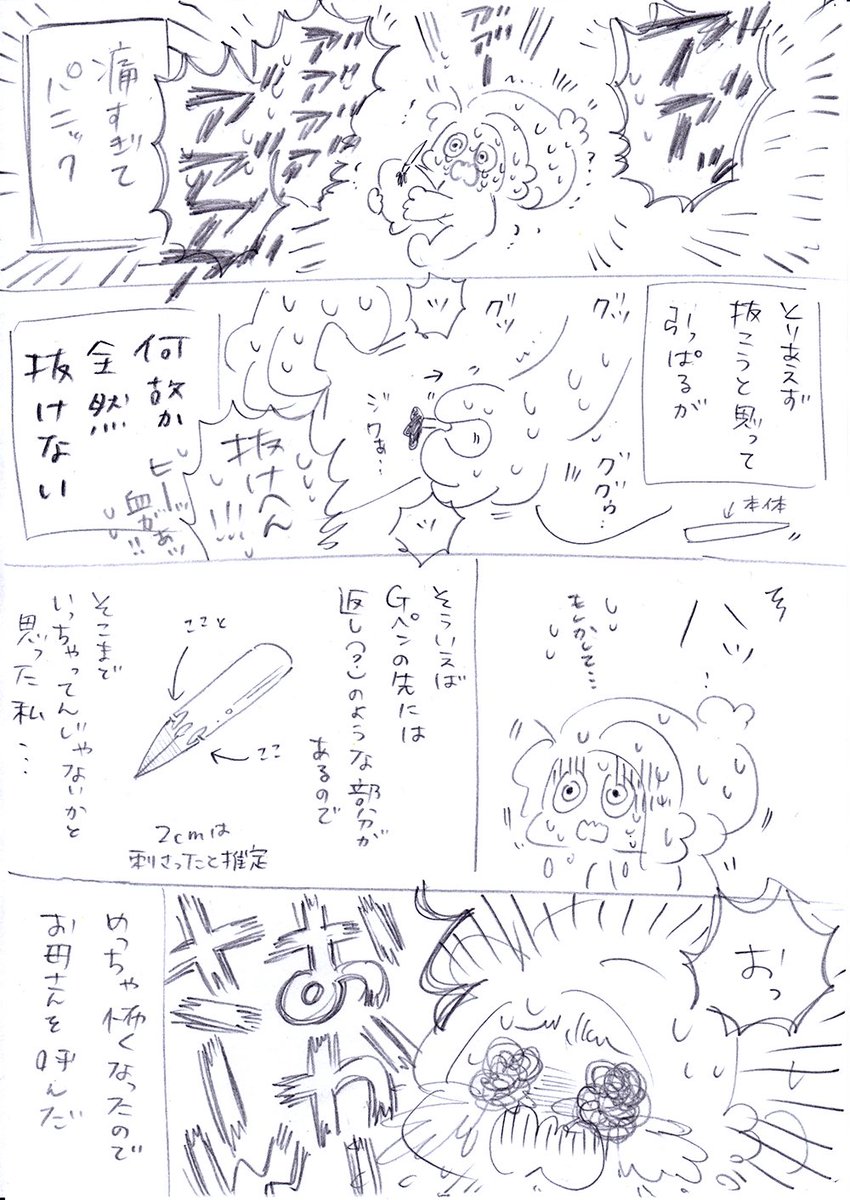 アデ
アデデー
アデ
アデ
アデ
アデ
アデデデデ
痛すぎて
パニック
とりあえず
抜こうと思って
引っぱるが
本体
グッ
グッ
ググゥ…
ッ
ッ
ジワぁ…
抜けへん
!!!
ヒーッ
血がぁッ
!!
何故か
全然
抜けない
ハッ
…
もしかして…
そういえば
Gペンの先には
返し(?)のような部分が
あるので
ここと
ここ
2cmは
刺さったと推定
そこまで
いっちゃってんじゃないかと
思った私…
おっ
めっちゃ怖くなったので
お母さんを呼んだ